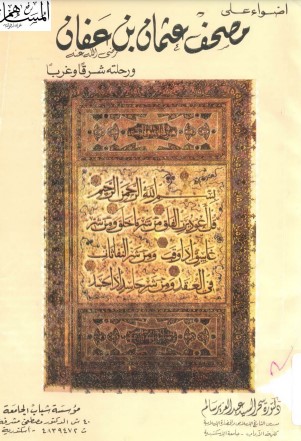 اضواء على
مصحف عثمان بن عفان
رضى الله عنه
ورحلته شرقا وغربا
بسم الله الرحمن الرحيم
قل اعوذ برب الفلق من شر ما خلق ومن شر
غاسق اذا وقب ومن شر النفاثات
فى العقد ومن شر حاسد اذا حسد
دكتورة سحر السيد عبد العزيز سالم
مؤسسة شباب الجامعة
٤٠ ش الدكتور مصطفى مشرفة
ت ٤٨٣٩٤٧٢ - اسكندرية